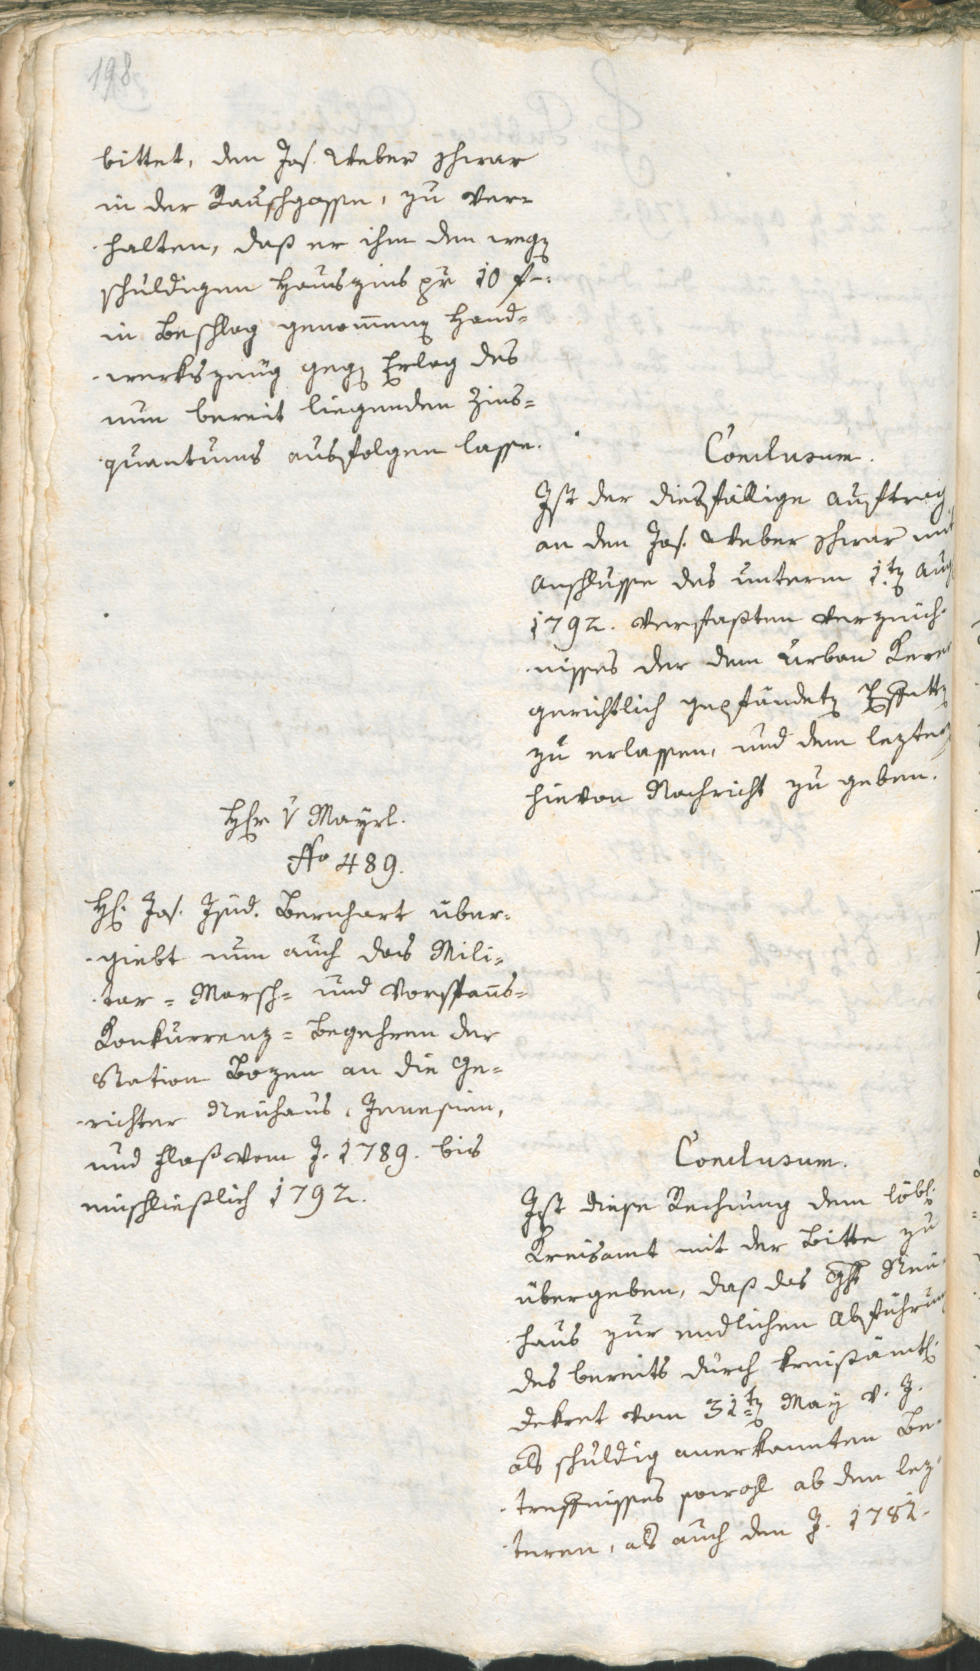 198
bittet, dem Jos. Weber
in der Rauschgasse, zu ver-
halten, daß er ihm den wegen
schuldigen Hauszins pr 10 f-:
in Beschlag genommenen Hand-
werkszeüg gegen Erlag des
nun bereit liegenden Zins-
quantums ausfolgen lasse.
Conclusum.
Ist der diesfällige Auftrag
an den Jos. Weber mit
Anschlusse des unterm 1ten Aug
1792. verfaßten Verzeich-
nisses der dem Urban
gerichtlich gepfändeten Effekten
zu erlassen, und dem leztern
hievon Nachricht zu geben.
Hr v Mayrl.
No 489.
H. Jos. Isid. Bernhart über-
giebt nun auch das Mili-
tar- Marsch- und Vorspanns-
Konkurrenz- Begehren der
Station Bozen an die Ge-
richter Neuhaus, Jenesien,
und Flaß vom J. 1789. bis
einschließlich 1792.
Conclusum.
Ist diese Rechnung dem löbl.
Kreisamt mit der Bitte zu
übergeben, daß das Ght Neu-
haus zur endlichen Abführung
des bereits durch kreisämtl.
Dekret vom 31ten May v. J.
als schuldig anerkannten Be-
treffnisses sowohl ab den lez-
teren, als auch den J. 1781.